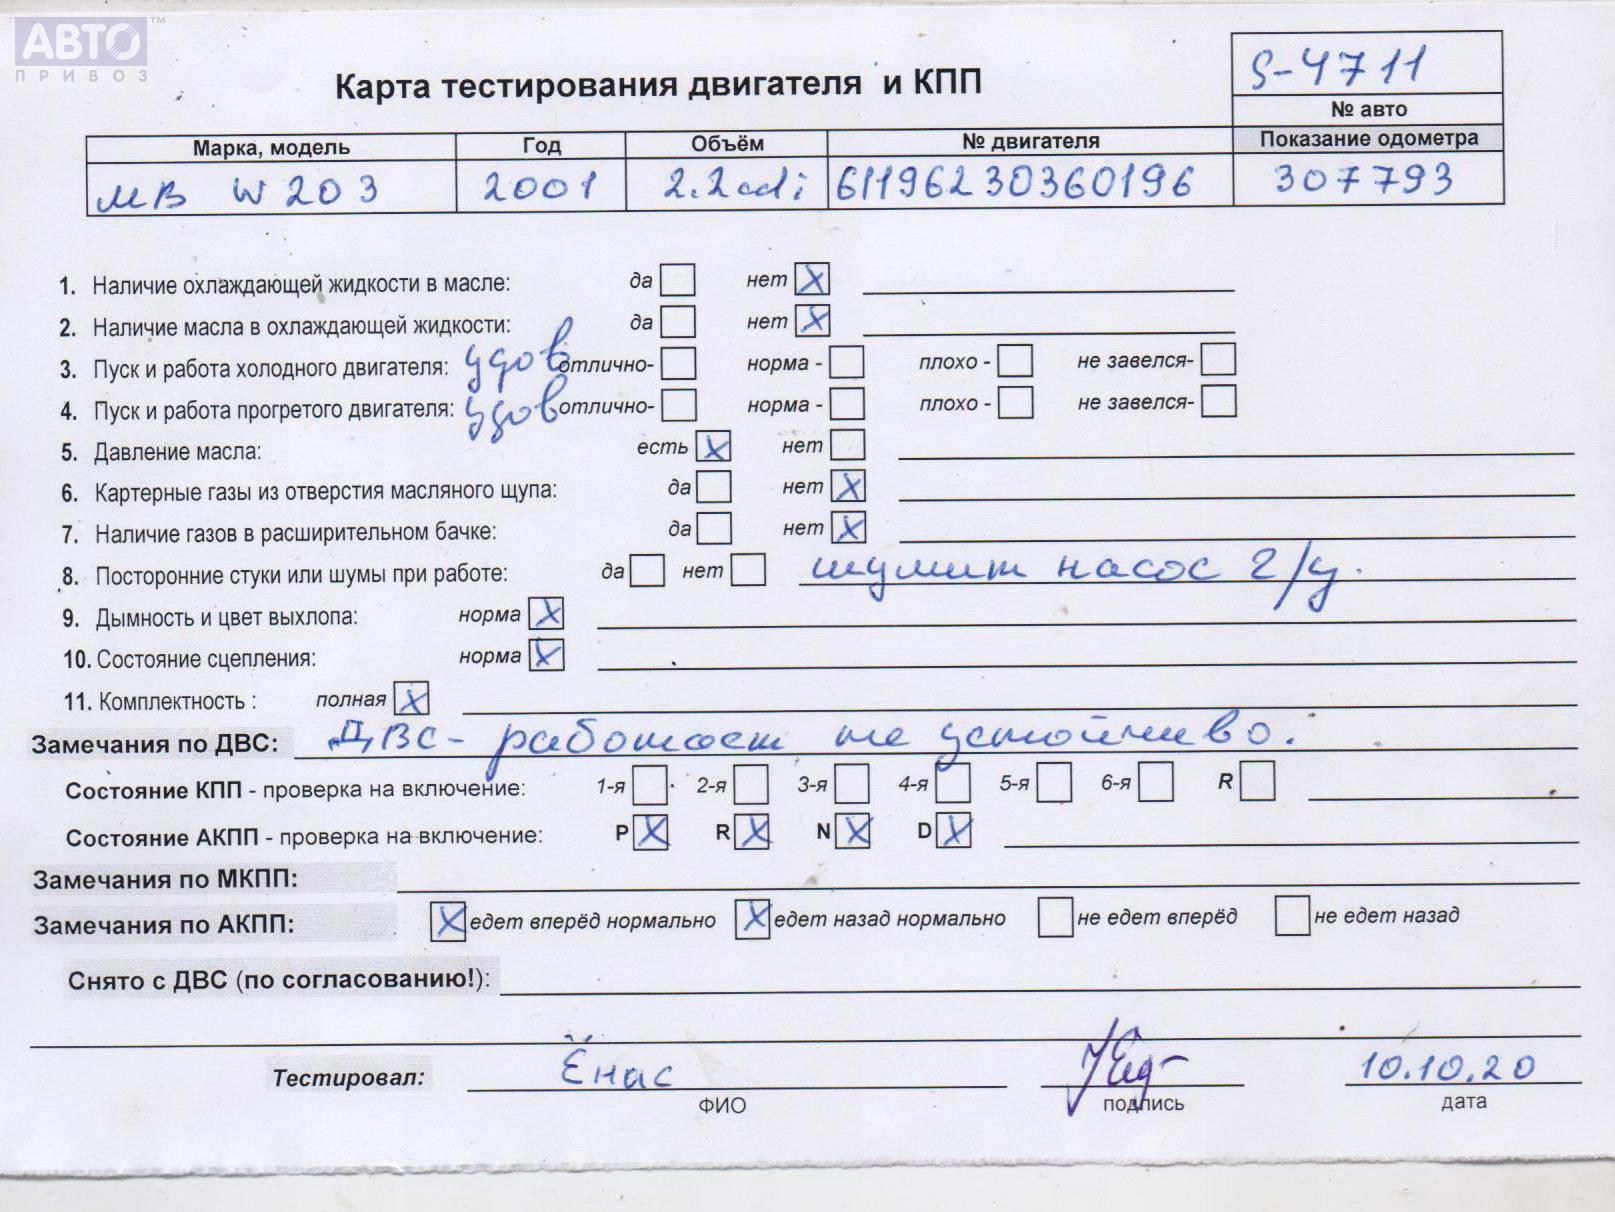 АВТО™
ПРИВОЗ
Карта тестирования двигателя и КПП
S-4711
№ авто
Марка, модель Год Объём № двигателя Показание одометра
МВ W203 2001 2.2cdi 61196230360196 307793
1. Наличие охлаждающей жидкости в масле: да нет X
2. Наличие масла в охлаждающей жидкости: да нет X
3. Пуск и работа холодного двигателя: удов отлично- норма - плохо - не завелся-
4. Пуск и работа прогретого двигателя: удов отлично- норма - плохо - не завелся-
5. Давление масла: есть X нет
6. Картерные газы из отверстия масляного щупа: да нет X
7. Наличие газов в расширительном бачке: да нет X
8. Посторонние стуки или шумы при работе: да нет шумит насос г/у.
9. Дымность и цвет выхлопа: норма X
10. Состояние сцепления: норма X
11. Комплектность : полная X
Замечания по ДВС: ДВС- работает не устойчиво.
Состояние КПП - проверка на включение: 1-я 2-я 3-я 4-я 5-я 6-я R
Состояние АКПП - проверка на включение: P X R X N X D X
Замечания по МКПП:
Замечания по АКПП: X едет вперёд нормально X едет назад нормально не едет вперёд не едет назад
Снято с ДВС (по согласованию!):
Тестировал: Ёнас 10.10.20
ФИО подпись дата